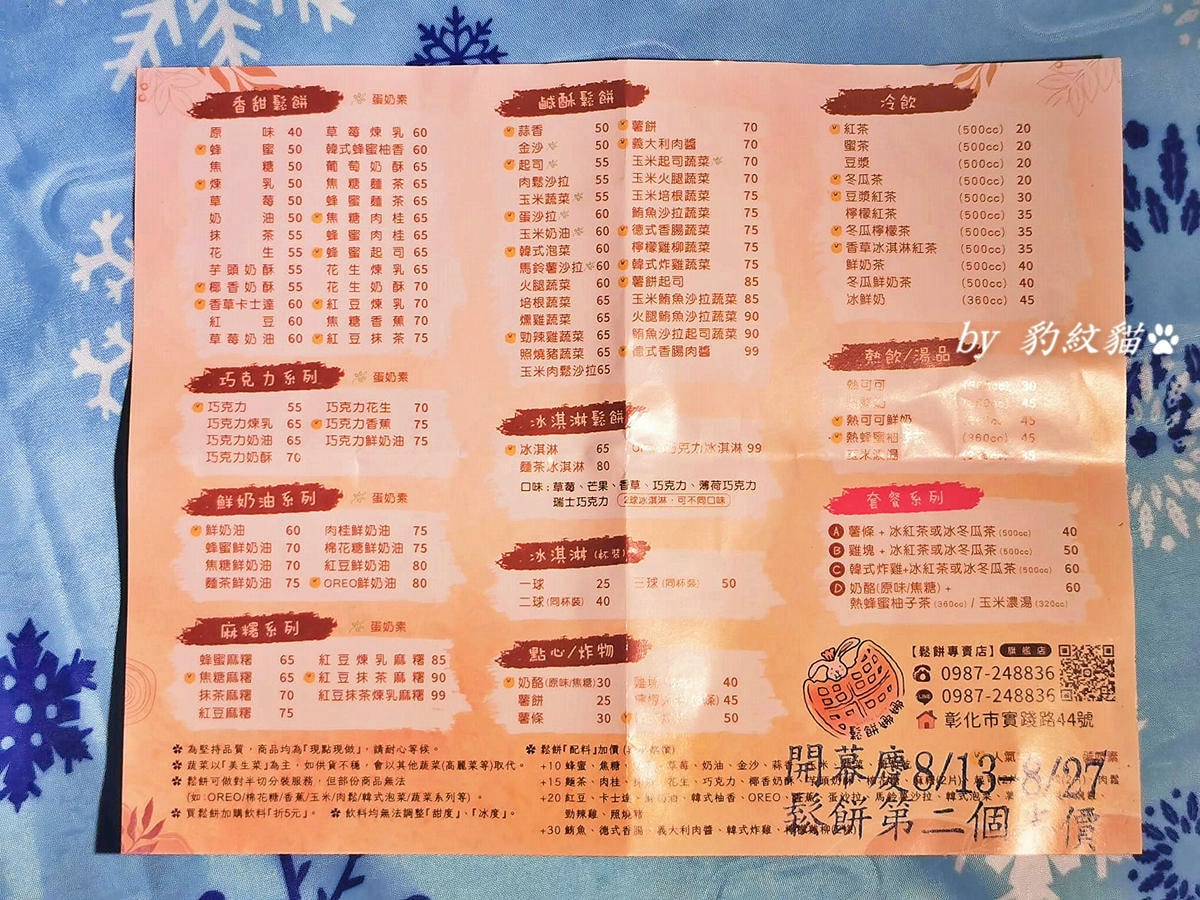 香甜鬆餅 蛋奶素
原味 40 草莓煉乳 60
蜂蜜 50 韓式蜂蜜柚香 60
焦糖 50 葡萄奶酥 65
煉乳 50 焦糖麵茶 65
草莓 50 蜂蜜麵茶 65
奶油 50 焦糖肉桂 65
抹茶 55 蜂蜜肉桂 65
花生 55 蜂蜜起司 65
芋頭奶酥 55 花生煉乳 65
椰香奶酥 55 花生奶酥 70
香草卡士達 60 紅豆煉乳 70
紅豆 60 焦糖香蕉 70
草莓奶油 60 紅豆抹茶 75
巧克力系列 蛋奶素
巧克力 55 巧克力花生 70
巧克力煉乳 65 巧克力香蕉 75
巧克力奶油 65 巧克力鮮奶油 75
巧克力奶酥 70
鮮奶油系列 蛋奶素
鮮奶油 60 肉桂鮮奶油 75
蜂蜜鮮奶油 70 棉花糖鮮奶油 75
焦糖鮮奶油 70 紅豆鮮奶油 80
麵茶鮮奶油 75 OREO鮮奶油 80
麻糬系列 蛋奶素
蜂蜜麻糬 65 紅豆煉乳麻糬 85
焦糖麻糬 65 紅豆抹茶麻糬 90
抹茶麻糬 70 紅豆抹茶煉乳麻糬 99
紅豆麻糬 75
鹹酥鬆餅
蒜香 50 薯餅 70
金沙 50 義大利肉醬 70
起司 55 玉米起司蔬菜 70
肉鬆沙拉 55 玉米火腿蔬菜 70
玉米蔬菜 55 玉米培根蔬菜 75
蛋沙拉 60 鮪魚沙拉蔬菜 75
玉米奶油 60 德式香腸蔬菜 75
韓式泡菜 60 檸檬雞柳蔬菜 75
馬鈴薯沙拉 60 韓式炸雞蔬菜 75
火腿蔬菜 60 薯餅起司 85
培根蔬菜 65 玉米鮪魚沙拉蔬菜 85
燻雞蔬菜 65 火腿鮪魚沙拉蔬菜 90
勁辣雞蔬菜 65 鮪魚沙拉起司蔬菜 90
照燒豬蔬菜 65 德式香腸肉醬 99
玉米肉鬆沙拉 65
冰淇淋鬆餅
冰淇淋 65 巧克力冰淇淋 99
麵茶冰淇淋 80
口味:草莓、芒果、香草、巧克力、薄荷巧克力
瑞士巧克力 2球冰淇淋,可不同口味
冰淇淋(杯裝)
一球 25 三球(同杯裝) 50
二球(同杯裝) 40
點心/炸物
奶酪(原味/焦糖) 30 40
薯餅 25 45
薯條 30 50
冷飲
紅茶 (500cc) 20
蜜茶 (500cc) 20
豆漿 (500cc) 20
冬瓜茶 (500cc) 20
豆漿紅茶 (500cc) 30
檸檬紅茶 (500cc) 35
冬瓜檸檬茶 (500cc) 35
香草冰淇淋紅茶 (500cc) 35
鮮奶茶 (500cc) 40
冬瓜鮮奶茶 (500cc) 40
冰鮮奶 (360cc) 45
by 豹紋貓
熱飲/湯品
熱可可 30
45
熱可可鮮奶 45
熱蜂蜜柚子茶 (360cc) 45
玉米濃湯 35
套餐系列
A 薯條 + 冰紅茶或冰冬瓜茶(500cc) 40
B 雞塊 + 冰紅茶或冰冬瓜茶(500cc) 50
C 韓式炸雞+冰紅茶或冰冬瓜茶(500cc) 60
D 奶酪(原味/焦糖) + 60
熱蜂蜜柚子茶(360cc) / 玉米濃湯(320cc)
【鬆餅專賣店】旗艦店
0987-248836
LINE 0987-248836
彰化市實踐路44號
為堅持品質,商品均為「現點現做」,請耐心等候。
蔬菜以「美生菜」為主,如供貨不穩,會以其他蔬菜(高麗菜等)取代。
鬆餅可做對半切分裝服務,但部份商品無法
(如:OREO/棉花糖/香蕉/玉米/肉鬆/韓式泡菜/蔬菜系列等)。
買鬆餅加購飲料「折5元」。 飲料均無法調整「甜度」、「冰度」。
鬆餅「配料」加價
+10 蜂蜜、焦糖 草莓、奶油、金沙、蒜香
+15 麵茶、肉桂 花生、巧克力、椰香奶酥
+20 紅豆、卡士達 韓式柚香、OREO
勁辣雞、照燒豬
+30 鮪魚、德式香腸、義大利肉醬、韓式炸雞
開幕慶8/13-8/27
鬆餅第二個半價